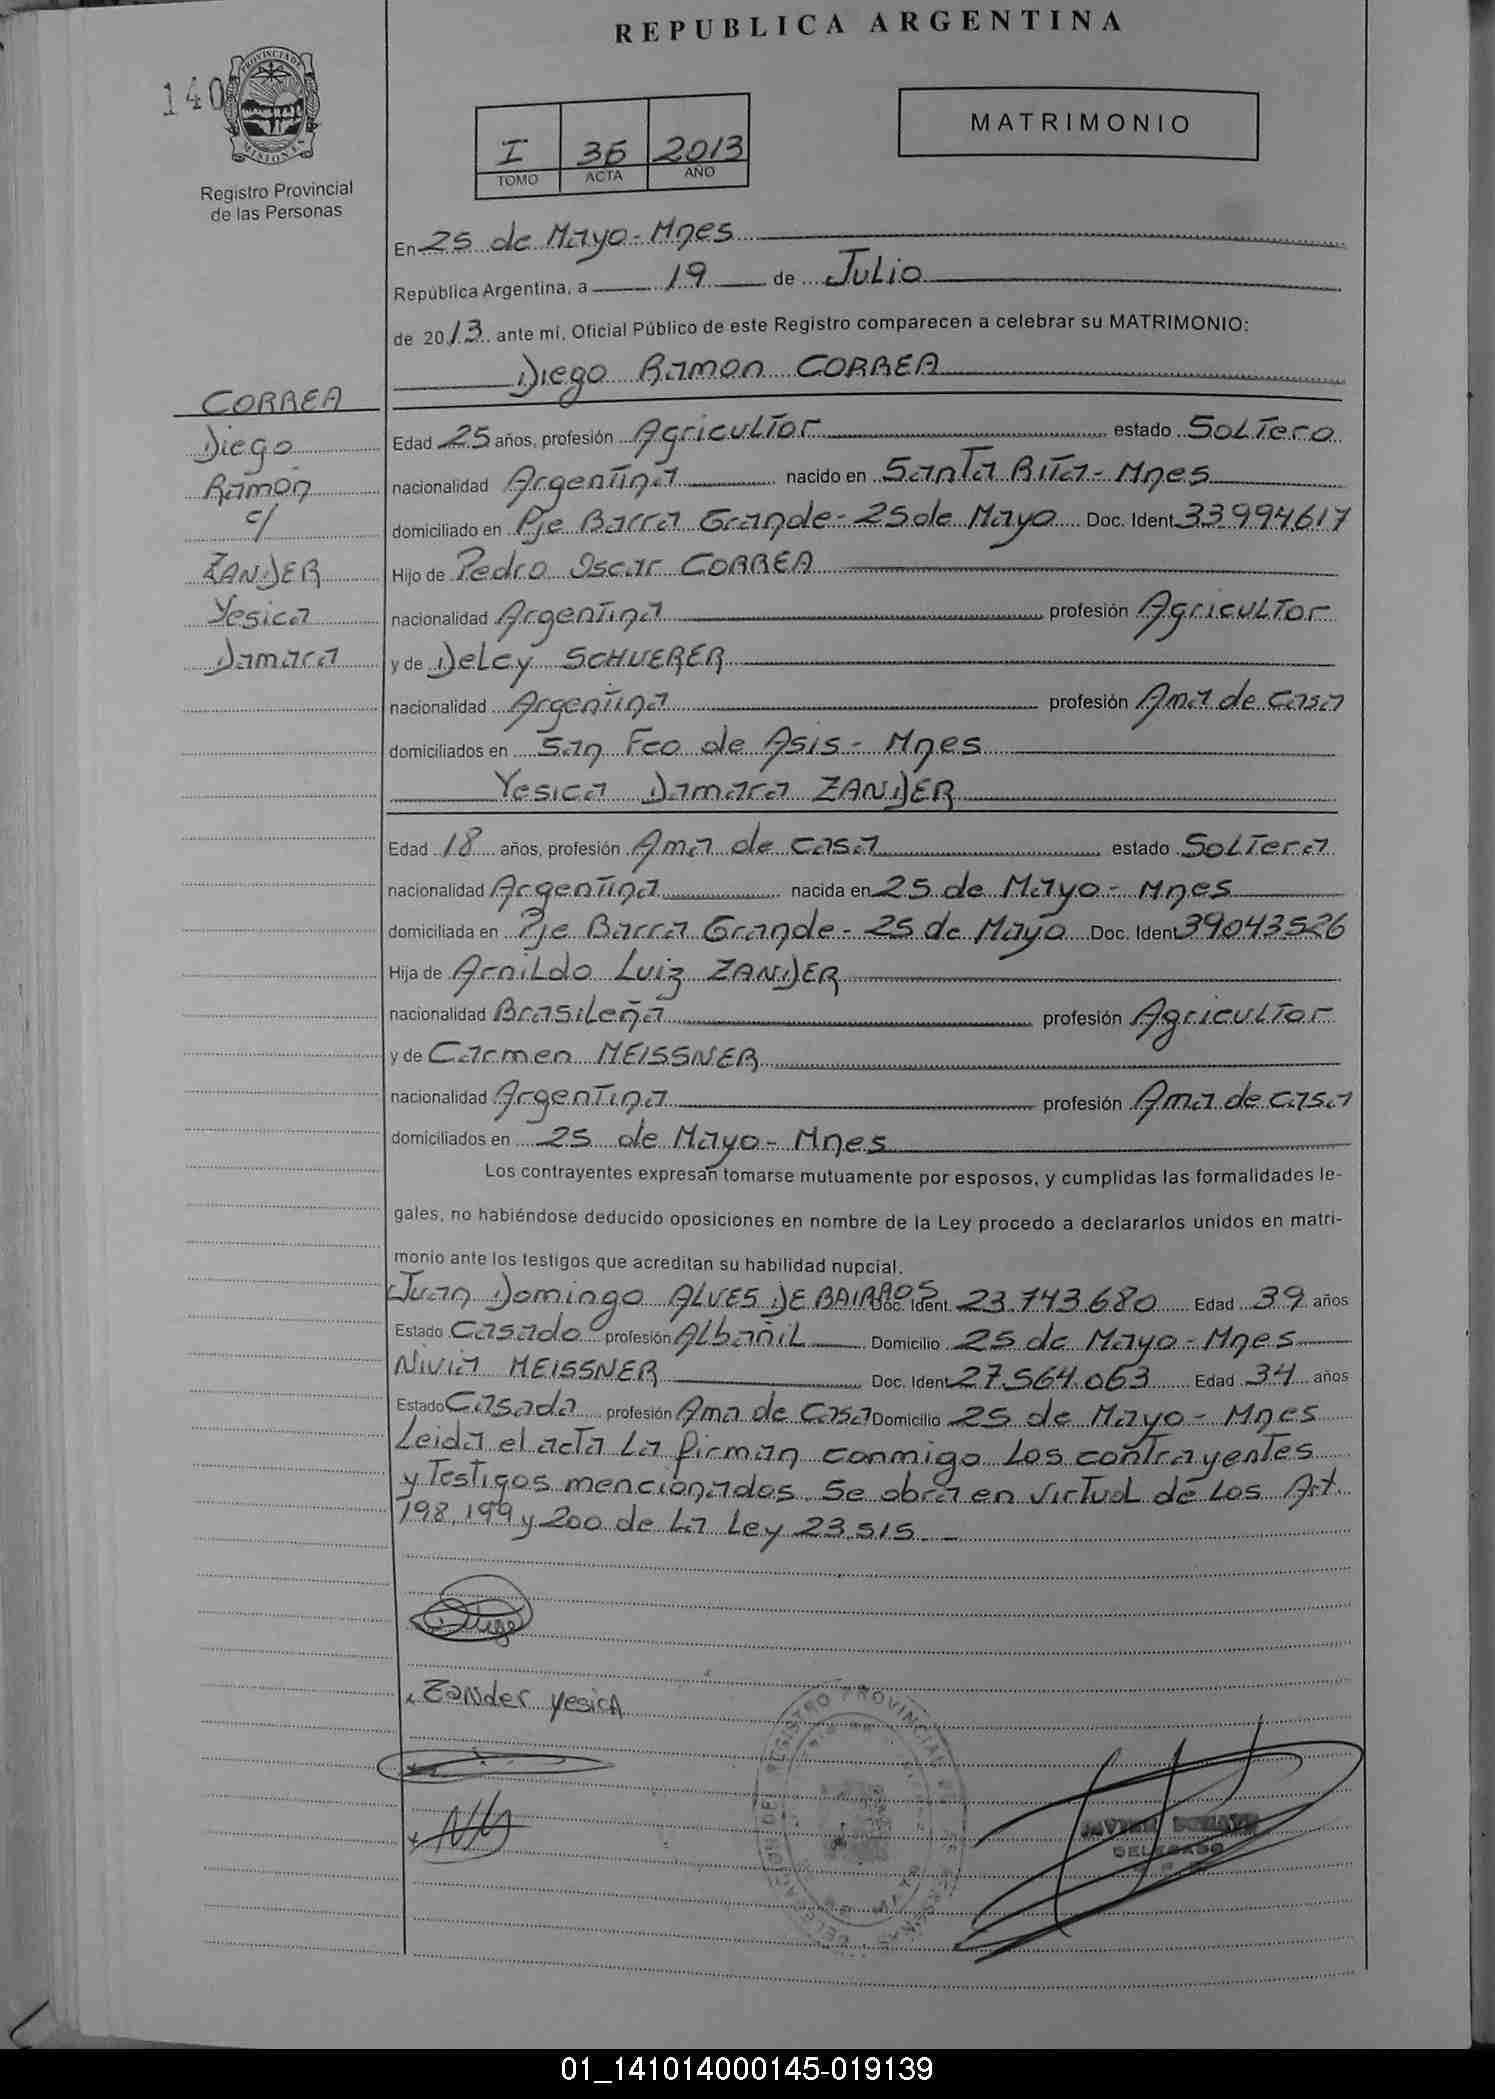 REPUBLICA ARGENTINA
140
PROVINCIA DE
MISIONES
Registro Provincial
de las Personas
I 36 2013
TOMO ACTA AÑO
MATRIMONIO
En 25 de Mayo - Mnes
República Argentina, a 19 de Julio
de 2013 ante mí, Oficial Público de este Registro comparecen a celebrar su MATRIMONIO:
Diego Ramon CORREA
CORREA
Diego
Ramon
c/
ZANDER
Yesica
Damara
Edad 25 años, profesión Agricultor estado Soltero
nacionalidad Argentina nacido en Santa Rita - Mnes
domiciliado en Pje Barra Grande - 25 de Mayo Doc. Ident. 33994617
Hijo de Pedro Oscar CORREA
nacionalidad Argentina profesión Agricultor
y de Delcy SCHUERER
nacionalidad Argentina profesión Ama de casa
domiciliados en San Fco de Asis - Mnes
Yesica Damara ZANDER
Edad 18 años, profesión Ama de casa estado Soltera
nacionalidad Argentina nacida en 25 de Mayo - Mnes
domiciliada en Pje Barra Grande - 25 de Mayo Doc. Ident. 39043526
Hija de Arnildo Luiz ZANDER
nacionalidad Brasileña profesión Agricultor
y de Carmen MEISSNER
nacionalidad Argentina profesión Ama de casa
domiciliados en 25 de Mayo - Mnes
Los contrayentes expresan tomarse mutuamente por esposos, y cumplidas las formalidades le-
gales, no habiéndose deducido oposiciones en nombre de la Ley procedo a declararlos unidos en matri-
monio ante los testigos que acreditan su habilidad nupcial.
Juan Domingo ALVES DE BAIRROS Doc. Ident. 23.743.680 Edad 39 años
Estado Casado profesión Albañil Domicilio 25 de Mayo - Mnes
Nivia MEISSNER Doc. Ident. 27.564.063 Edad 34 años
Estado Casada profesión Ama de Casa Domicilio 25 de Mayo - Mnes
Leida el acta la firman conmigo los contrayentes
y Testigos mencionados. Se obra en virtud de los Art.
198, 199 y 200 de la Ley 23515. -
Zander yesica
DELEGADO
01_141014000145-019139